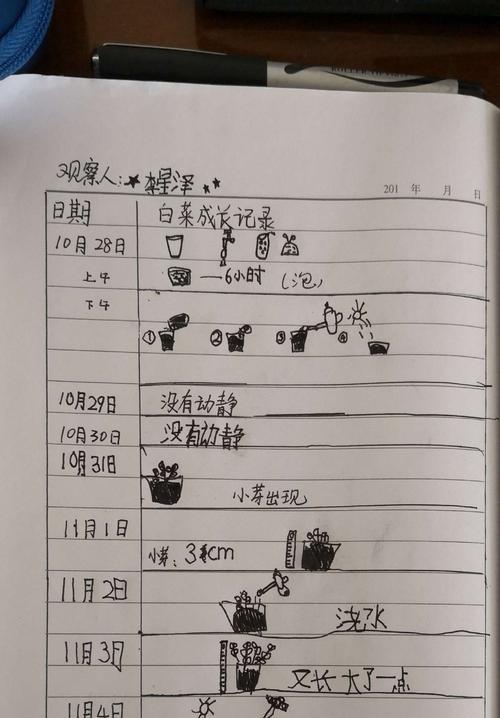 ROLLER
观察人:李星泽
201 年 月 日
日期 白菜成长记录
10月28日
上午 —6小时(泡)
下午
① ② ③ ④
10月29日 没有动静
10月30日 没有动静
10月31日
小芽出现
11月1日
小芽:3cm
11月2日
浇水
11月3日
又长大了一点
11月4日